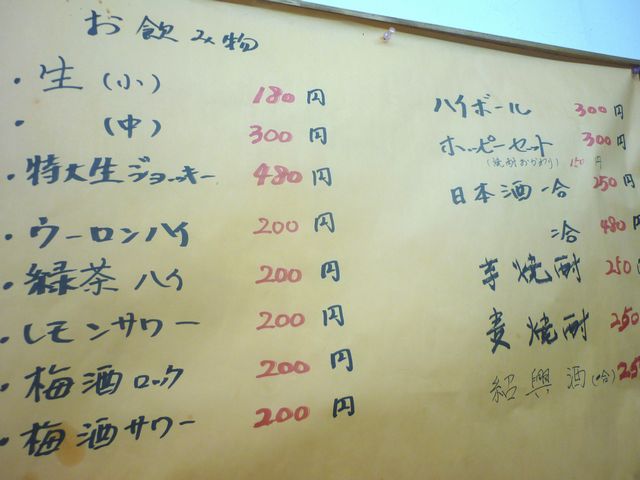 お飲み物
・生(小) 180円
・ (中) 300円
・特大生ジョッキー 480円
・ウーロンハイ 200円
・緑茶ハイ 200円
・レモンサワー 200円
・梅酒ロック 200円
・梅酒サワー 200円
ハイボール 300円
ホッピーセット 300円
(焼酎おかわり) 150円
日本酒一合 250円
二合 480円
芋焼酎 250
麦焼酎 250
紹興酒(一合) 25